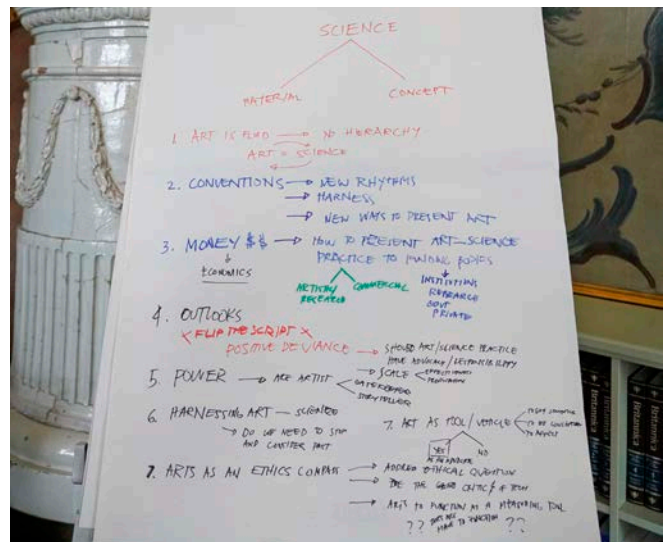 SCIENCE
MATERIAL CONCEPT
1. ART IS FLUID → NO HIERARCHY
ART = SCIENCE
2. CONVENTIONS → NEW RHYTHMS
→ HARNESS
→ NEW WAYS TO PRESENT ART
3. MONEY $$ → HOW TO PRESENT ART-SCIENCE
PRACTICE TO FUNDING BODIES
ECONOMICS
ARTISTIC RESEARCH
COMMERCIAL
INSTITUTIONS
RESEARCH
GOVT
PRIVATE
4. OUTLOOKS
FLIP THE SCRIPT
POSITIVE DEVIANCE → SHOULD ART/SCIENCE PRACTICE
HAVE ADVOCACY/RESPONSIBILITY
→ SCALE
5. POWER → ARE ARTIST
GATEKEEPER
STORYTELLER
6. HARNESSING ART - SCIENCE
→ DO WE NEED TO STOP
AND CONSIDER
7. ART AS TOOL/VEHICLE
YES NO
7. ARTS AS AN ETHICS COMPASS → ADDRESS ETHICAL QUESTION
→ THE GOOD CRITIC
→ ARTS TO FUNCTION AS A MEASURING TOOL
?? ARTS ARE ??
MADE TO FUNCTION
Britannica
Britannica
Britannica